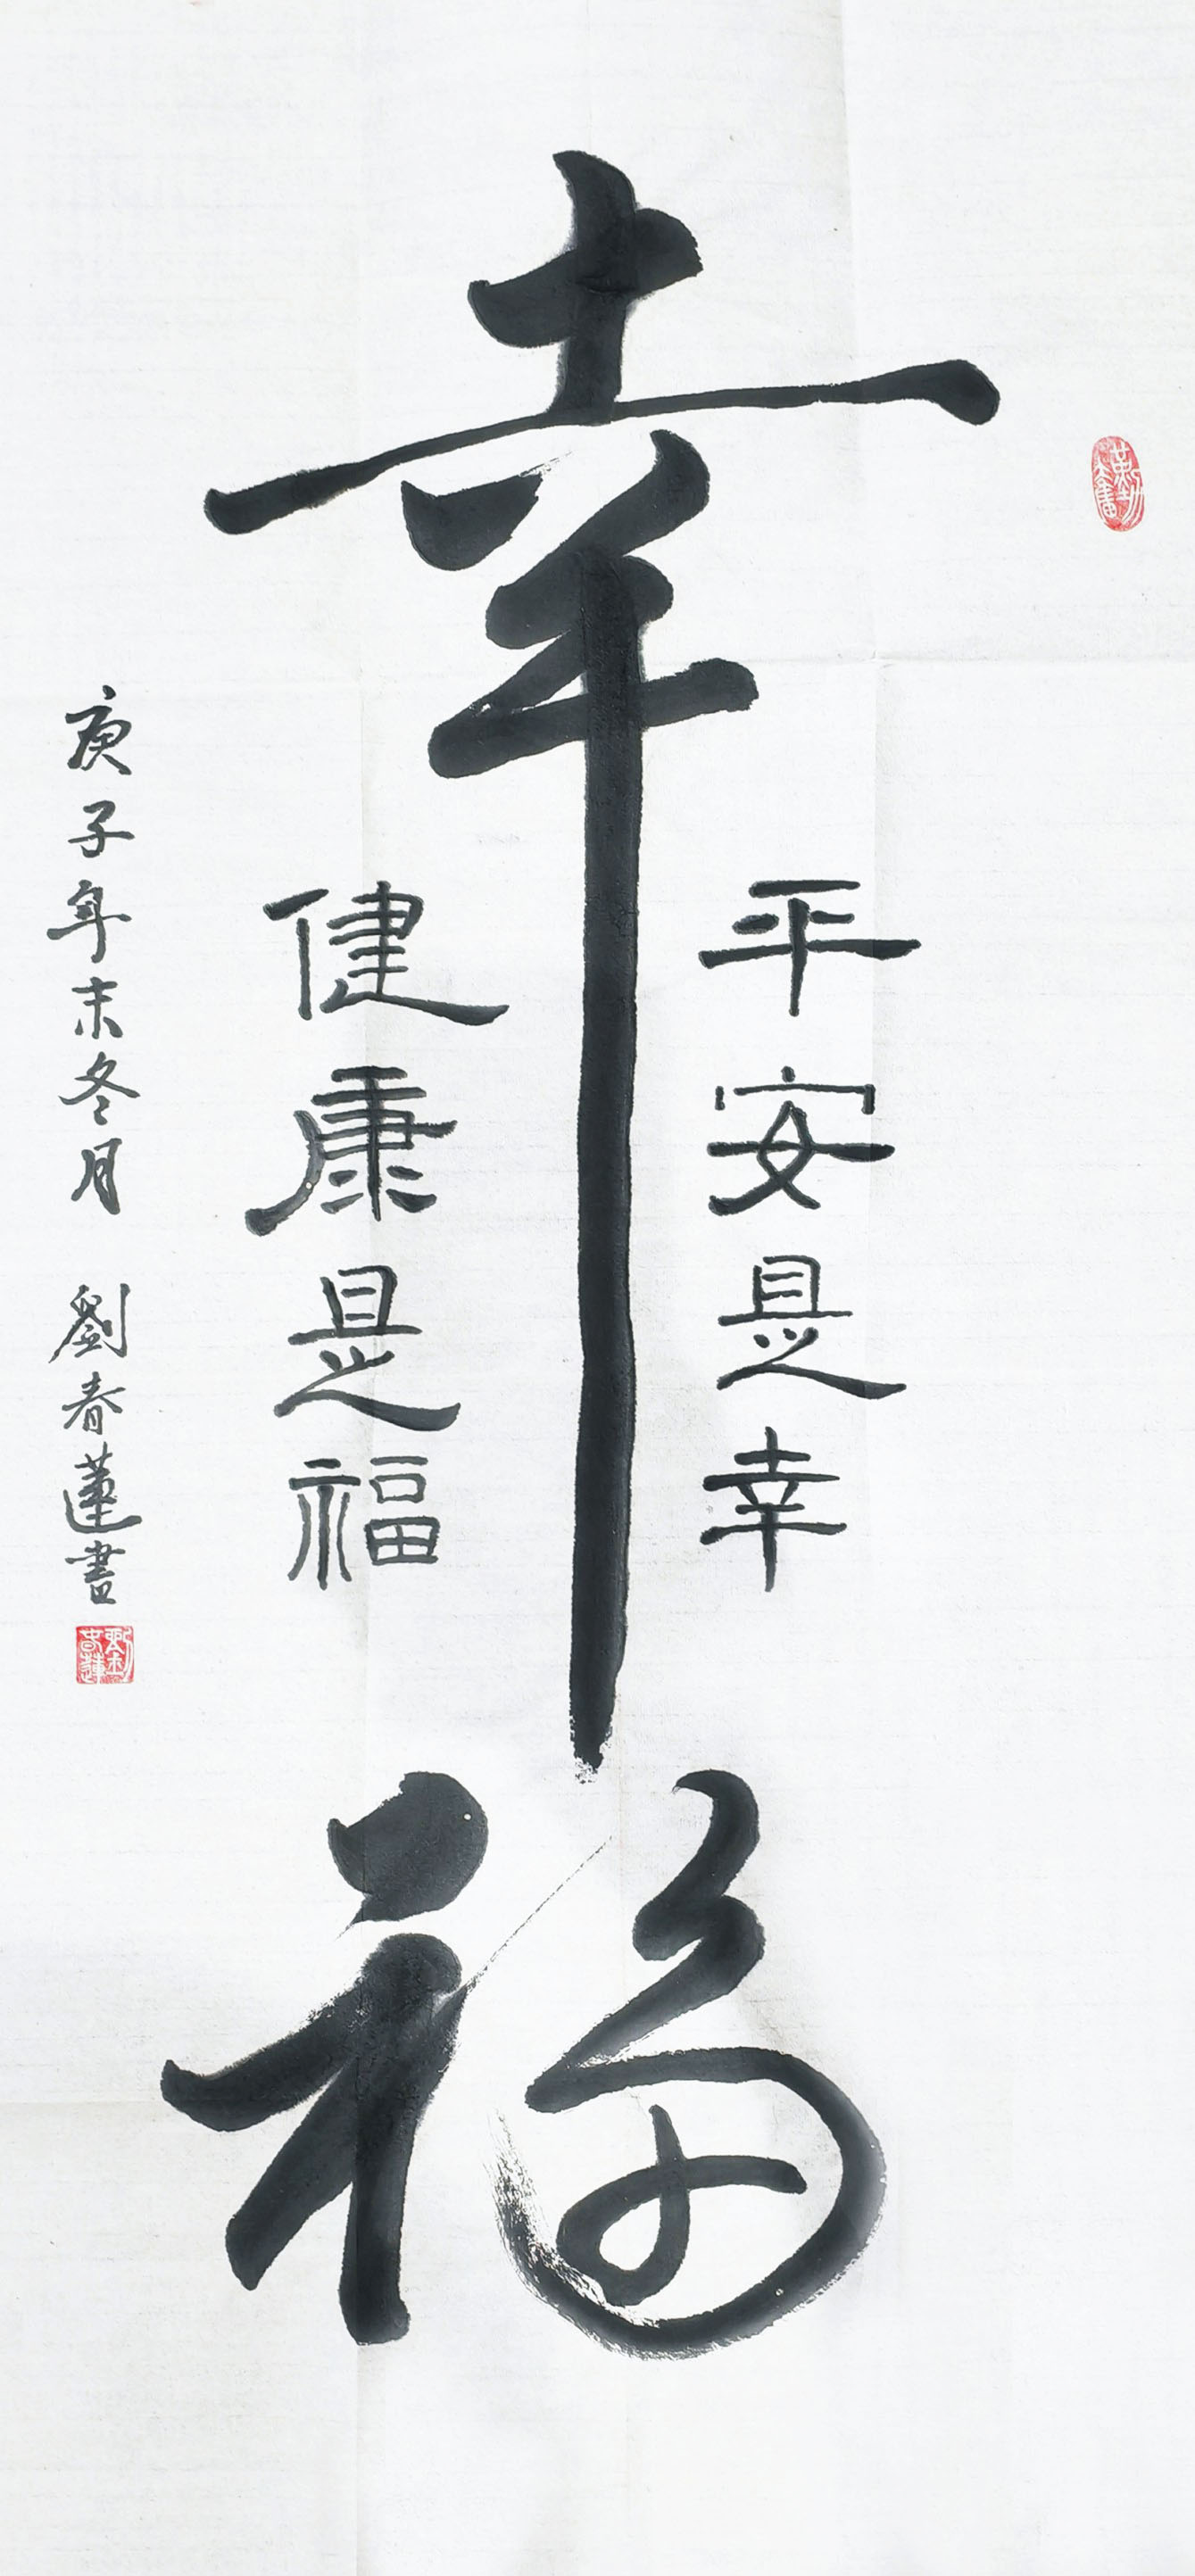 幸福
平安是幸
健康是福
庚子年末冬月 劉春蓮書
劉春蓮